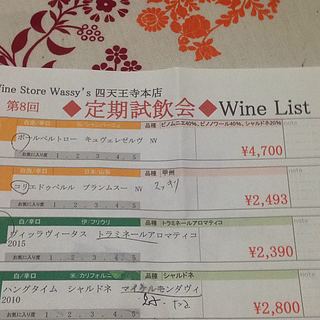 Wine Store Wassy's 四天王寺本店
第8回 ◆定期試飲会◆Wine List
品種 ピノムニエ40%、ピノノワール40%、シャルドネ20% note
ポールベルトロー キュヴェレゼルヴ NV
¥4,700
お気に入り度 1 . 2 . 3 . 4 . 5
品種 甲州 note
コリエドゥペルル ブランムスー NV
¥2,493
お気に入り度 1 . 2 . 3 . 4 . 5
白/辛口 伊/フリウリ 品種 トラミネールアロマティコ note
ヴィッラヴィータス トラミネールアロマティコ
2015
¥2,390
お気に入り度 1 . 2 . 3 . 4 . 5
白/辛口 米/カリフォルニア 品種 シャルドネ note
ハングタイム シャルドネ マイケルモンダヴィ
2010
¥2,800
お気に入り度 1 . 2 . 3 . 4 . 5